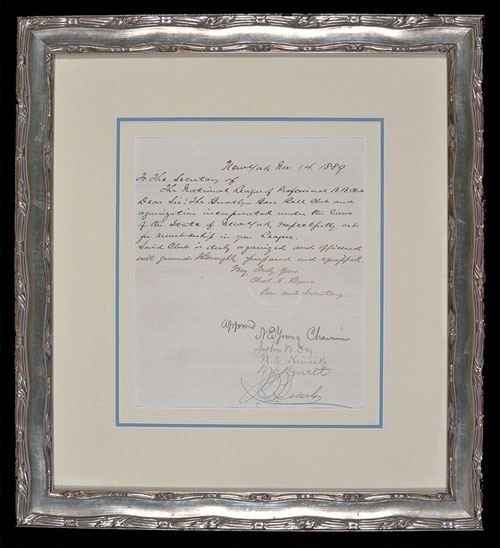 New York Nov 14, 1889
To The Secretary of
The National League of Professional B.B. Clubs
Dear Sir: The Brooklyn Base Ball Club and
organization incorporated under the laws
of the State of New York, respectfully ask
for membership in your League.
Said Club is duly organized and officered
with grounds thoroughly prepared and equipped.
Very Truly Yours
Chas. H.
Pres and Secretary.
Approved N.E. Young Chairman
John B Day
W. A. Nimick
W. Hewett